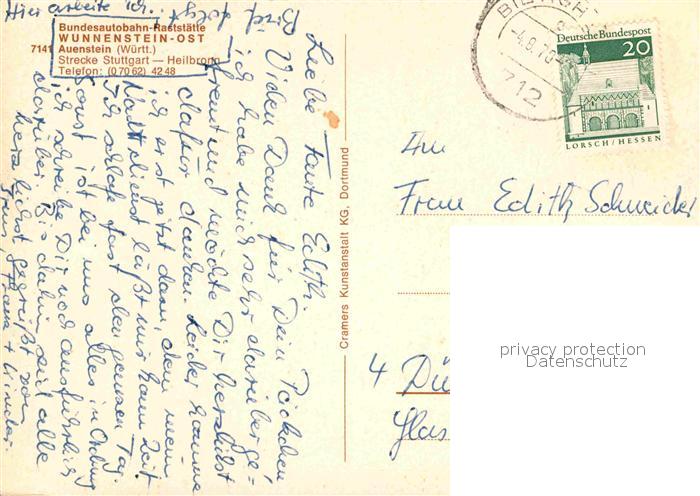 Hier arbeite ich.
Bundesautobahn-Raststätte
WUNNENSTEIN-OST
7141 Auenstein (Württ.)
Strecke Stuttgart — Heilbronn
Telefon: (0 70 62) 42 48
Brief folgt
Liebe Tante Edith.
Vielen Dank für Dein Päckchen,
ich habe mich sehr darüber ge-
freut und möchte Dir herzlichst
dafür danken. Leider komme
ich erst jetzt dazu, denn mein
Nachtdienst läßt mir kaum Zeit.
Ich schlafe fast den ganzen Tag.
Sonst ist bei uns alles in Ordnung
ich schreibe Dir noch ausführlich
darüber. Bis dahin seid alle
herzlichst gegrüßt von
+ Kinder.
Cramers Kunstanstalt KG, Dortmund
BILNIGH
-4.8.70
712
Deutsche Bundespost
20
LORSCH/HESSEN
An
Frau Edith Schneider
4 Dü
Glas
privacy protection
Datenschutz